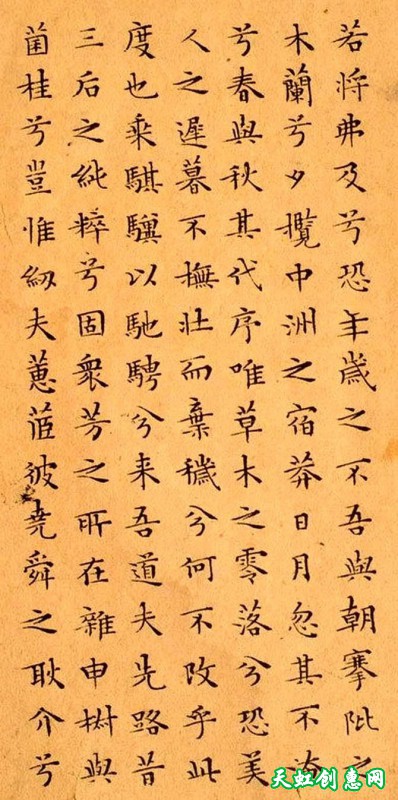 若將弗及兮恐年歲之不吾與朝搴阰之
木蘭兮夕攬中洲之宿莽日月忽其不淹
兮春與秋其代序唯草木之零落兮恐美
人之遲暮不撫壯而棄穢兮何不改乎此
度也乘騏驥以馳騁兮来吾道夫先路昔
三后之純粹兮固衆芳之所在雜申椒與
菌桂兮豈惟紉夫蕙茝彼堯舜之耿介兮
天虹创惠网